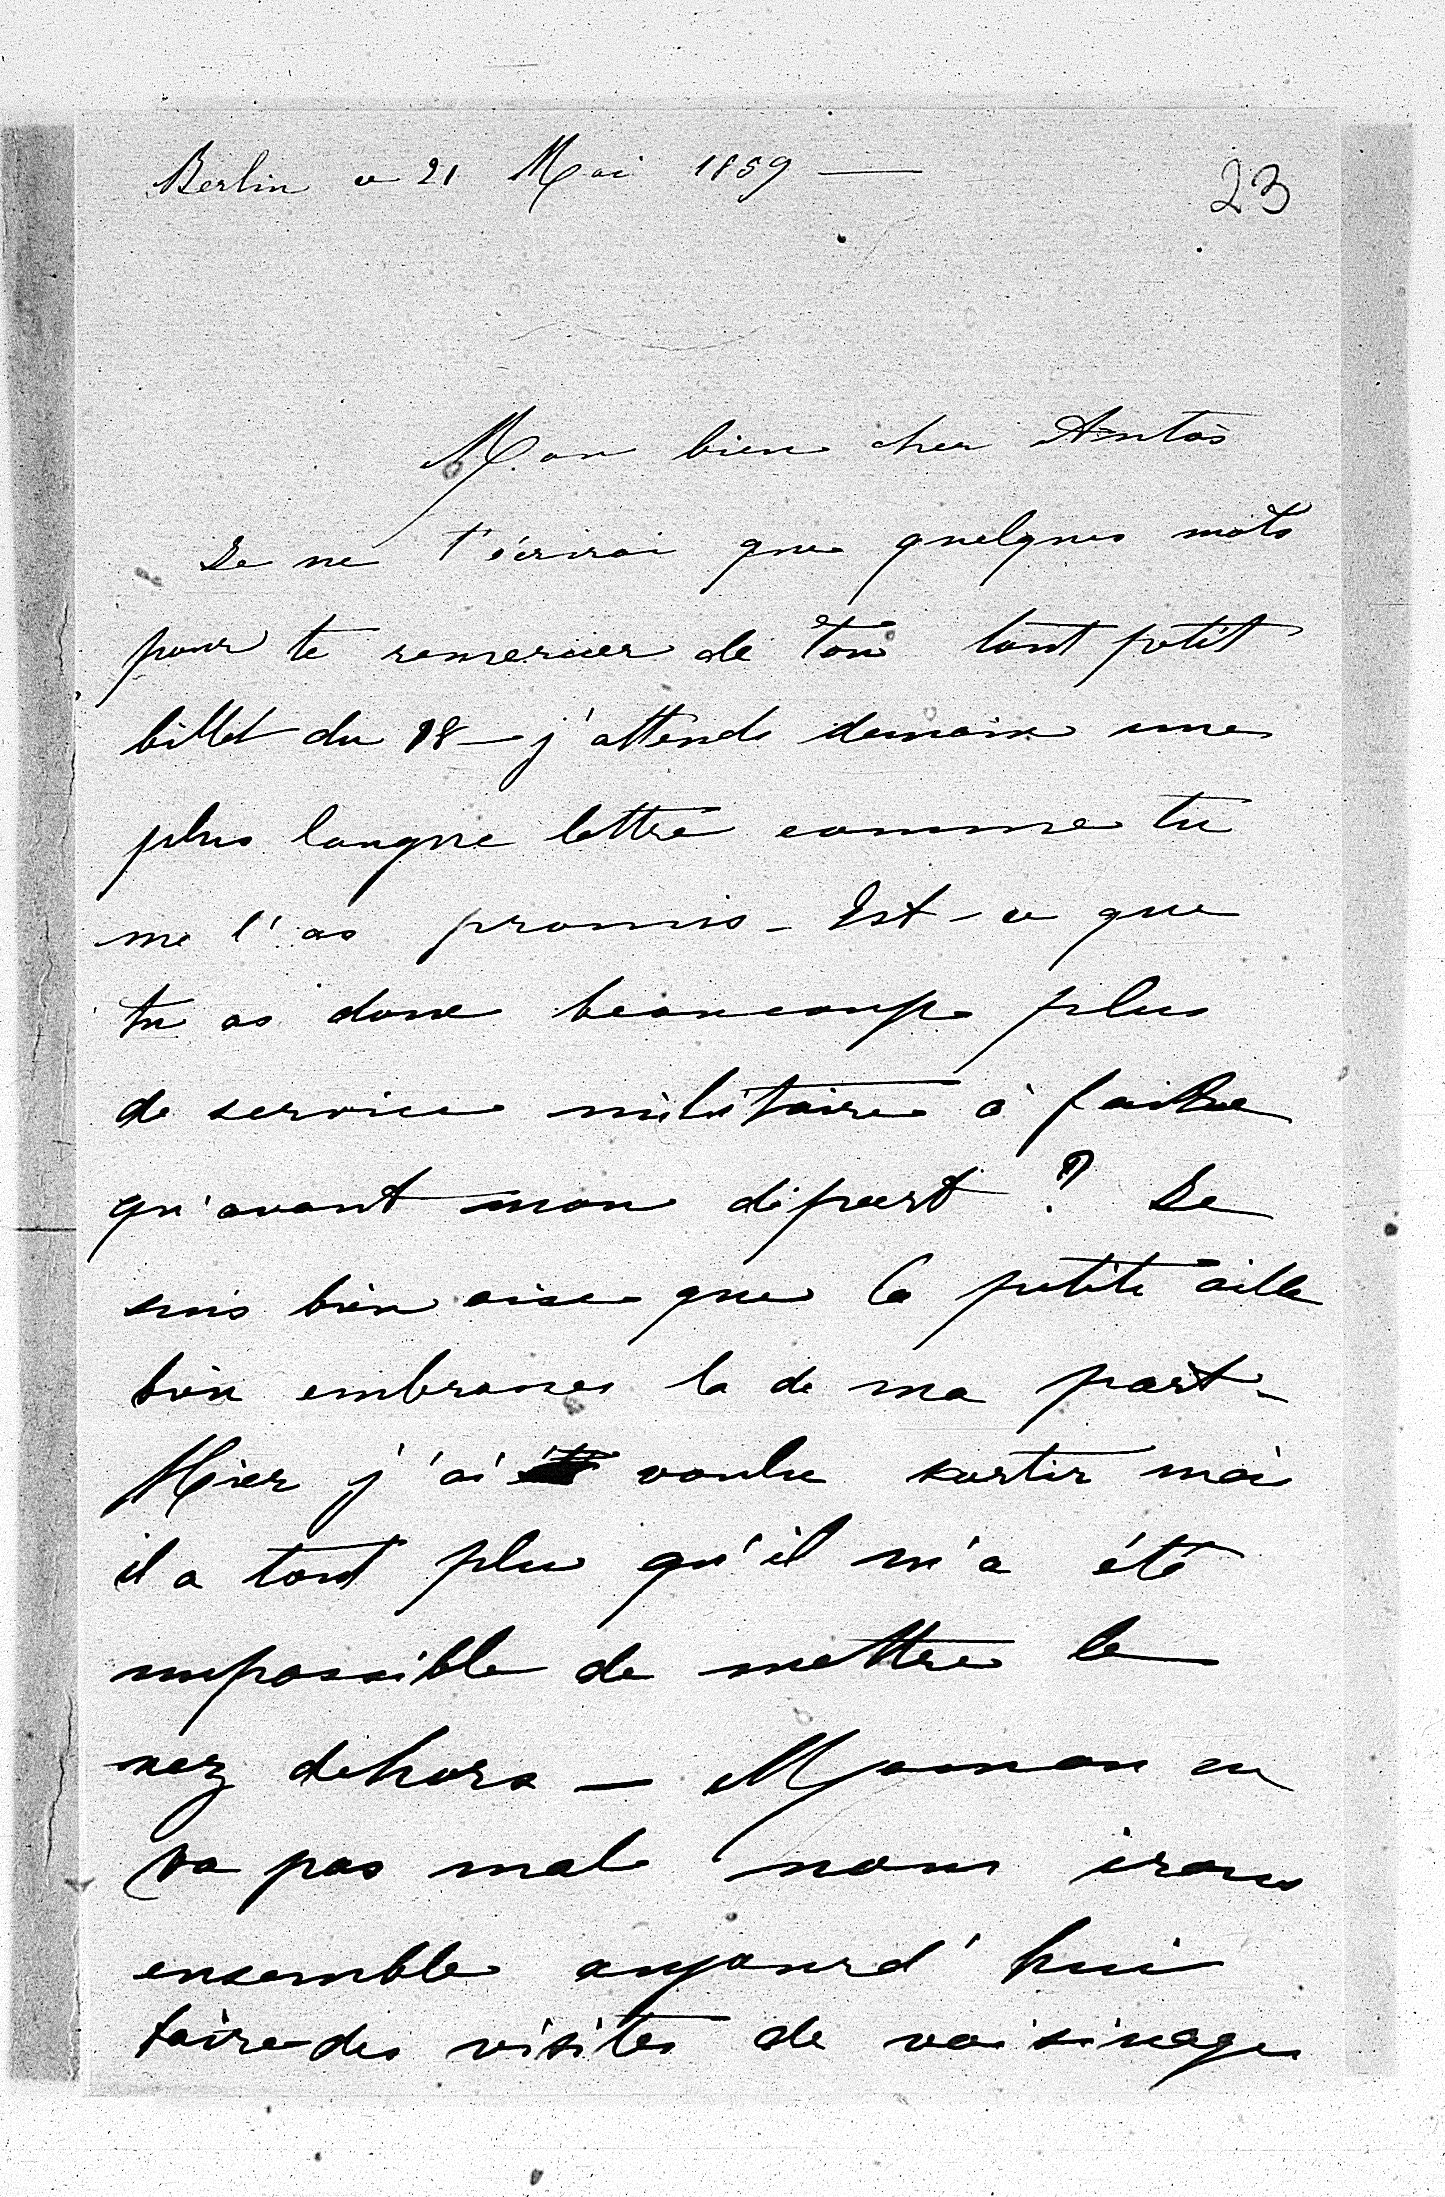 Berlin ce 21 Mai 1859 —
23
Mon bien cher Antos
Je ne t'écrirai que quelques mots
pour te remercier de ton tout petit
billet du 18 — j'attends demain une
plus longue lettre comme tu
me l'as promis – Est-ce que
tu as donc beaucoup plus
de service militaire à faire
qu'avant mon départ ? Je
suis bien aise que la petite aille
bien embrasses la de ma part –
Hier j'ai voulu sortir mais
il a tant plu qu'il m'a été
impossible de mettre le
nez dehors — Maman en
va pas mal nous irons
ensemble aujourd'hui
faire des visites de voisinage